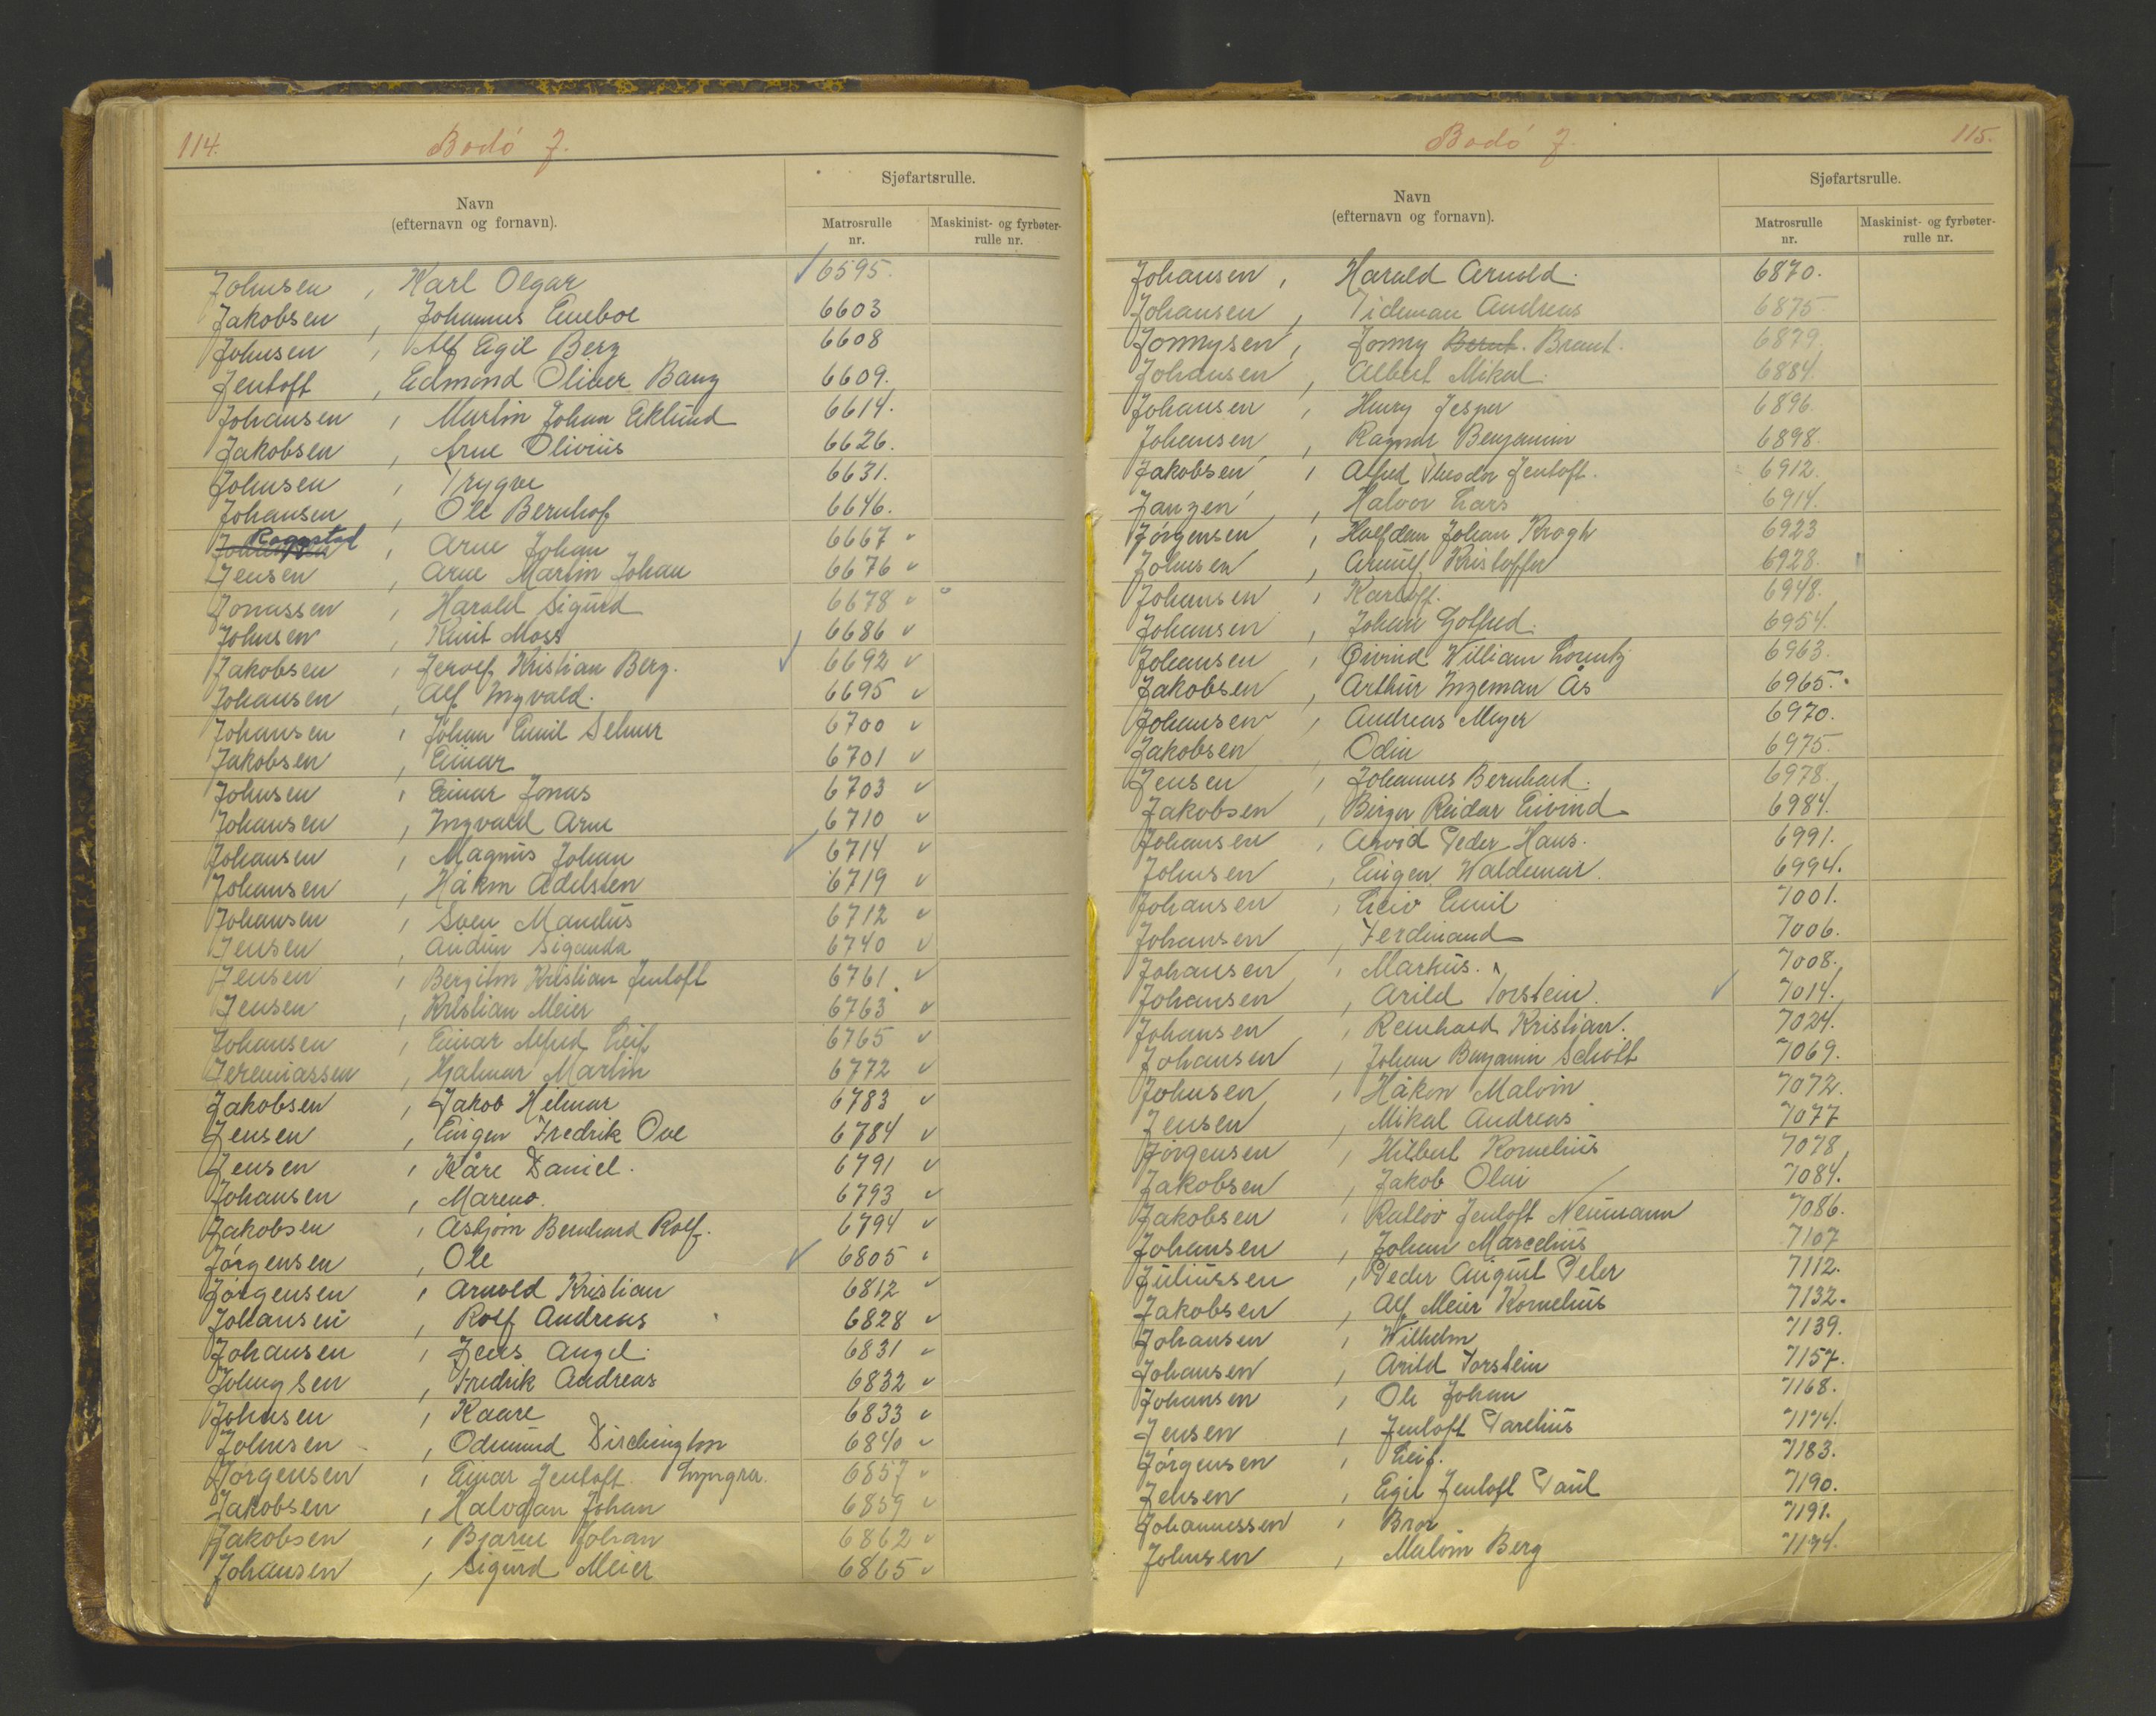 114.
Bodó J.
Navn
(efternavn og fornavn).
Sjøfartsrulle.
Matrosrulle nr.
Maskinist- og fyrbøter-rulle nr.
Johnsen, Karl Olgar 6595.
Jakobsen, Johannes Eneboe 6603
Johnsen, Alf Egil Berg 6608
Jentoft, Edmond Oliver Bang 6609.
Johansen, Martin Johan Eklund 6614.
Jakobsen, Arne Olivius 6626.
Johnsen, Trygve 6631.
Johansen, Ole Bernhof 6646.
Roggstad, Arne Johan 6667
Jensen, Arne Martin Johan 6676
Jonassen, Harald Sigurd 6678
Johnsen, Knut Moss 6686
Jakobsen, Jerolf Kristian Berg. 6692
Johansen, Alf Ingvald. 6695
Johansen, Johan Emil Selmer 6700
Jakobsen, Einar 6701
Johnsen, Einar Jonas 6703
Johansen, Ingvald Arne 6710
Johansen, Magnus Johan 6714
Johansen, Håkon Adelsten 6719
Johansen, Sven Mandus 6712
Jensen, Audun Siganda 6740
Jensen, Bergiton Kristian Jentoft 6761
Jensen, Kristian Meier 6763
Johansen, Einar Alfred Leif 6765
Jeremiassen, Hjalmar Martin 6772
Jakobsen, Jakob Hilmar 6783
Jensen, Eugen Fredrik Ove 6784
Jensen, Kåre Daniel. 6791
Johansen, Mareno. 6793
Jakobsen, Asbjørn Bernhard Rolf. 6794
Jørgensen, Ole 6805
Jørgensen, Arnold Kristian 6812
Johansen, Rolf Andreas 6828
Johansen, Jens Angel. 6831
Johnysen, Fredrik Andreas 6832
Johnsen, Kaare 6833
Johnsen, Odmund Dirchington 6840
Jørgensen, Einar Jentoft Lyngra. 6857
Jakobsen, Halvdan Johan 6859
Jakobsen, Bjarne Johan 6862
Johansen, Sigurd Meier 6865
Bodó J.
115.
Navn
(efternavn og fornavn).
Sjøfartsrulle.
Matrosrulle nr.
Maskinist- og fyrbøter-rulle nr.
Johansen, Harald Arnold. 6870.
Johansen, Tideman Andreas 6875
Jonnysen, Jonny Bernt. Brant. 6879.
Johansen, Albert Mikal. 6884.
Johansen, Henry Jesper 6896.
Johansen, Ragnar Benjamin 6898.
Jakobsen, Alfred Theodor Jentoft. 6912.
Janzen, Halvor Lars 6914.
Jørgensen, Halfdan Johan Krogh 6923
Johnsen, Arnulf Kristoffer 6928.
Johansen, Karloff. 6948.
Johansen, Johan Gotfred. 6954.
Johansen, Øivind William Lorentz 6963.
Jakobsen, Arthur Ingeman Ås 6965.
Johansen, Andreas Meyer 6970.
Jakobsen, Odin 6975.
Jensen, Johannes Bernhard. 6978.
Jakobsen, Birger Reidar Eivind 6984.
Johansen, Arvid Peder Hans. 6991.
Johnsen, Eugen Waldemar. 6994.
Johansen, Leiv Emil 7001.
Johansen, Ferdinand 7006.
Johansen, Markus. 7008.
Johansen, Arild Torstein. 7014.
Johansen, Reinhard Kristian. 7024.
Johansen, Johan Benjamin Schólt 7069.
Johnsen, Håkon Malvin 7072.
Jensen, Mikal Andreas 7077
Jørgensen, Hilbert Kornelius 7078
Jakobsen, Jakob Olai 7084.
Jakobsen, Ratlov Jentoft Neumann 7086.
Johansen, Johan Marcelius 7107
Juliussen, Peder August Peter 7112.
Jakobsen, Alf Meier Kornelius 7132.
Johansen, Wilhelm 7139.
Johansen, Arild Torstein 7157.
Johansen, Ole Johan 7168.
Jensen, Jentoft Parelius 7174.
Jørgensen, Leif. 7183.
Jensen, Egil Jentoft Paul 7190.
Johannessen, Bror 7191.
Johnsen, Malvin Berg 7194.